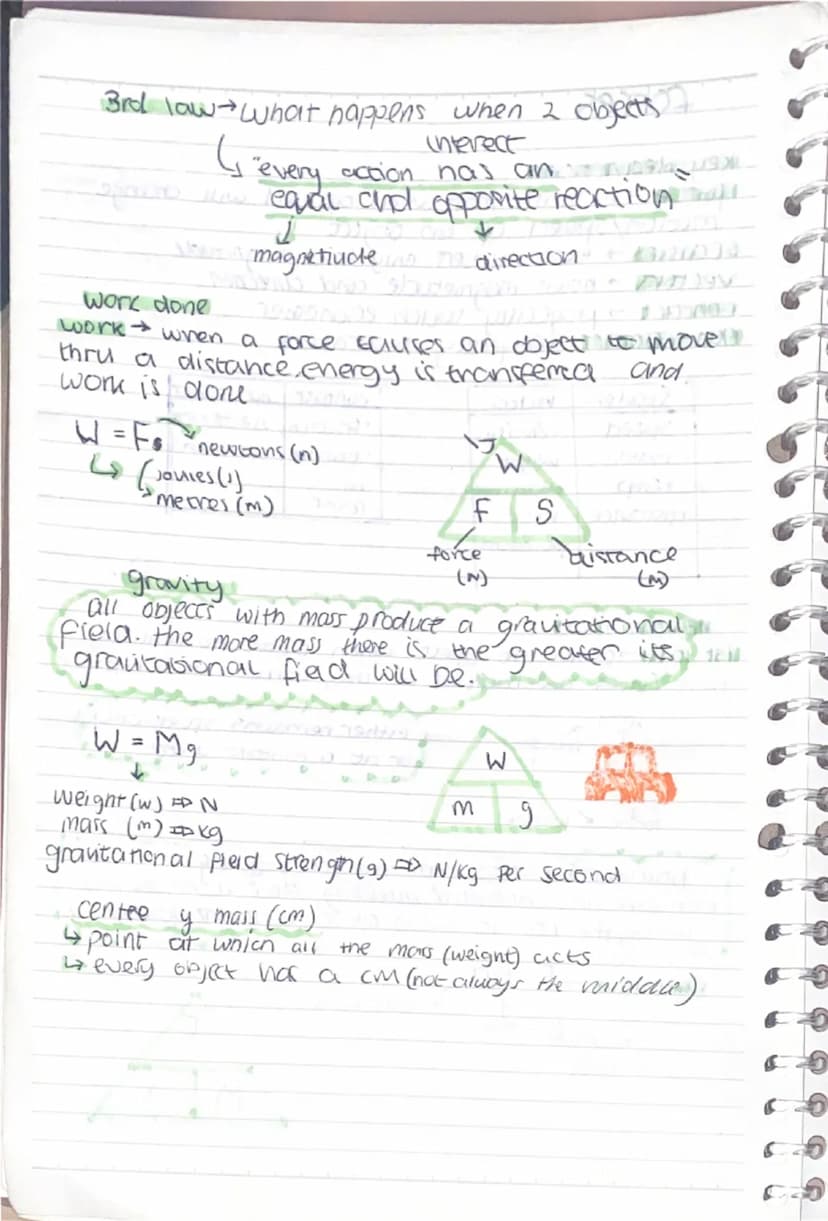 3rd law → what happens when 2 objects
interect
↳ "every action has an
equal and opposite reaction"
↓ ↓
magnetiude direction
work done
work → when a force causes an object to move
thru a distance, energy is transferred and
work is done
W = Fs → newtons (n)
↳ joules (J)
↳ metres (m)
↳ J
W
F S
force distance
(N) (m)
gravity
all objects with mass produce a gravitational
field. the more mass there is the greater its
gravitasional field will be.
W = Mg
↓
W
m g
weight (w) ⇒ N
mass (m) ⇒ kg
gravitational field strength (g) ⇒ N/kg per second
centre of mass (cm)
↳ point at which all the mass (weight) acts
↳ every object has a cm (not always the middle)